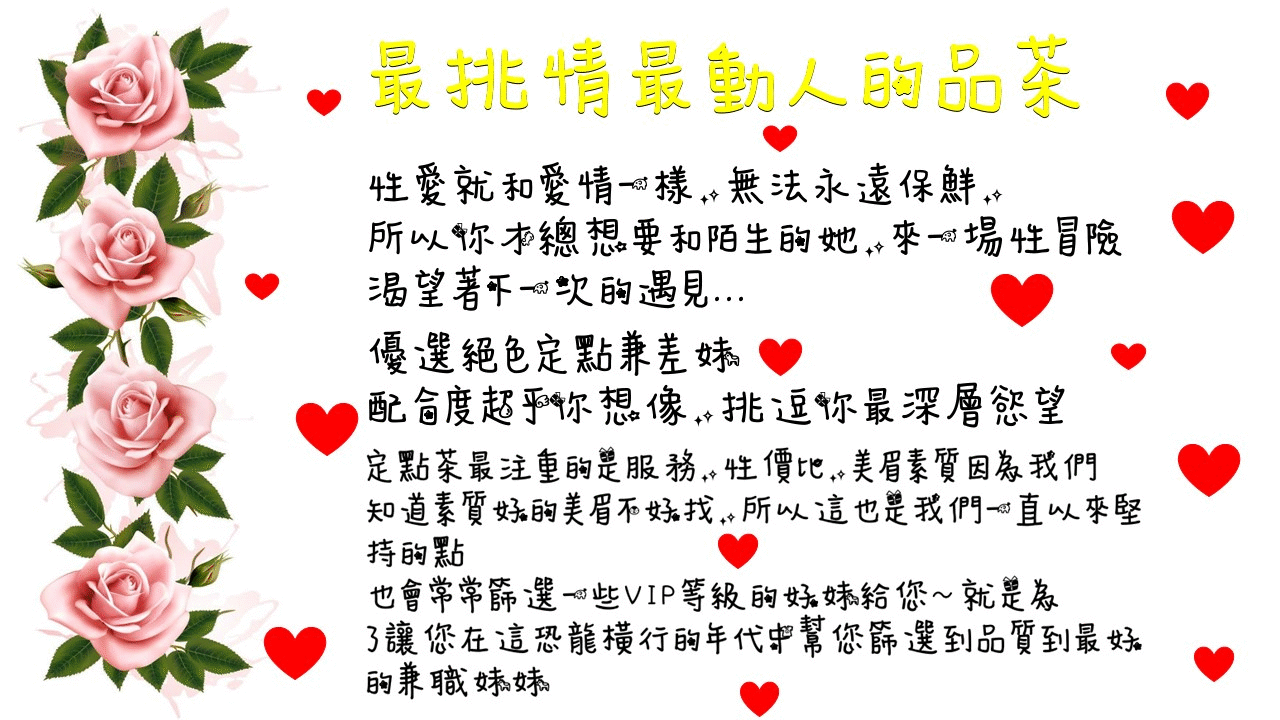 最挑情最動人的品茶
性愛就和愛情一樣,無法永遠保鮮,
所以你才總想要和陌生的她,來一場性冒險
渴望著下一次的遇見...
優選絕色定點兼差妹
配合度超乎你想像,挑逗你最深層慾望
定點茶最注重的是服務,性價比,美眉素質因為我們
知道素質好的美眉不好找,所以這也是我們一直以來堅
持的點
也會常常篩選一些VIP等級的好妹給您~就是為
了讓您在這恐龍橫行的年代中幫您篩選到品質到最好
的兼職妹妹